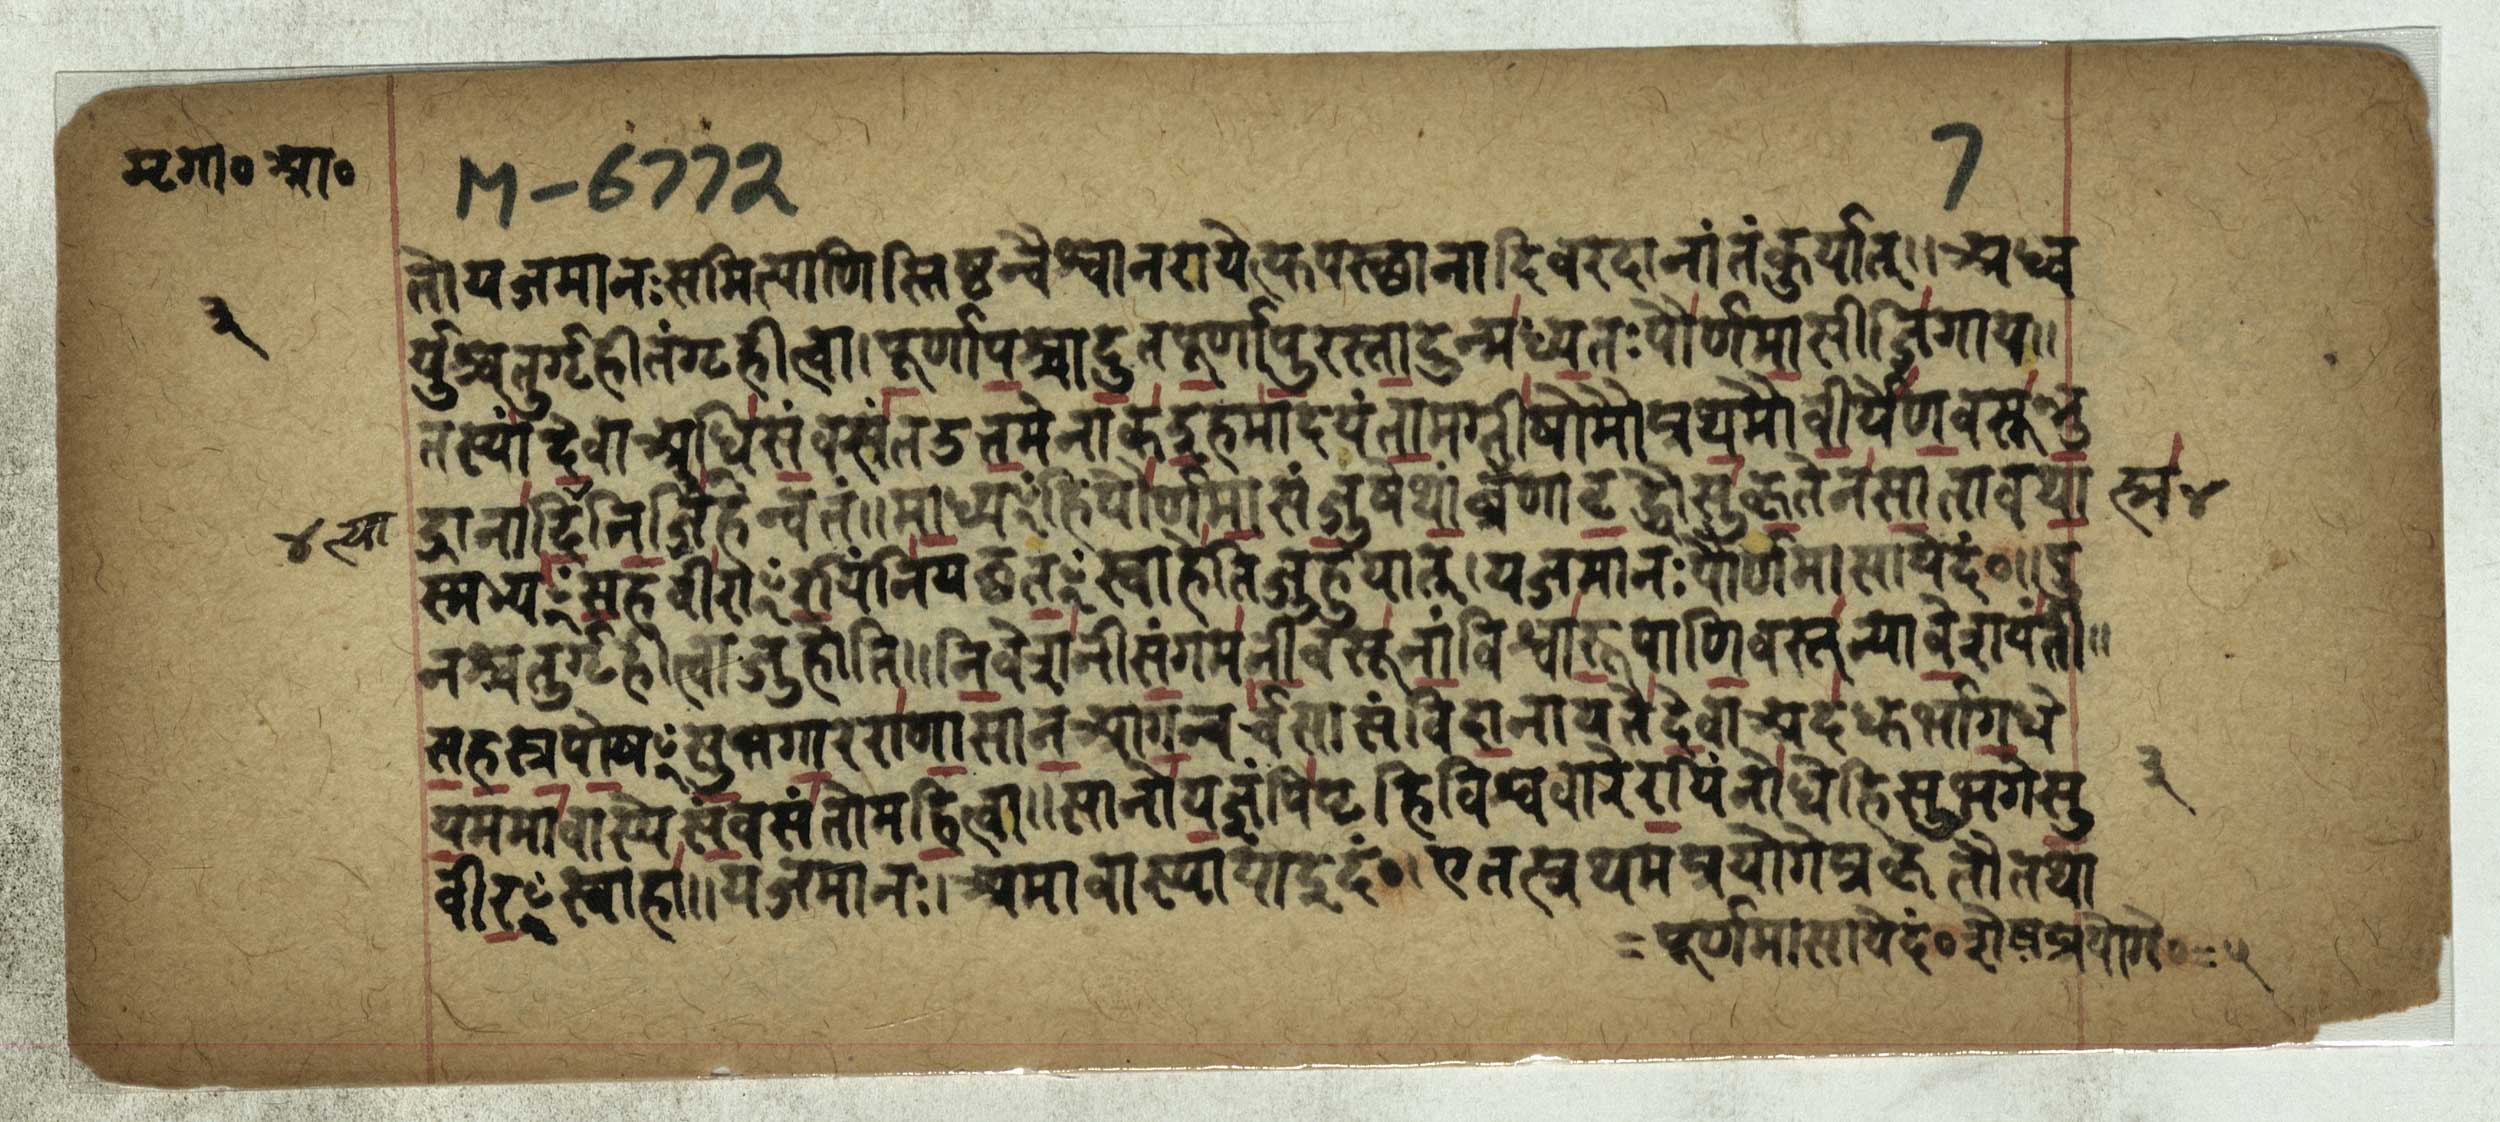 मृगा० आ०
M-6772
7
३
तौयजमानःसमित्पाणिस्तिष्ठन्वैश्वानरायेत्यकपस्छानादिवरदानांतंकुर्यात्।।अध्व
र्युश्चतुर्गृहीतंगृहीत्वा।पूर्णापश्चादुतपूर्णापुरस्तादुन्मध्यतःपौर्णमासीजिगाय।।
तस्यांदेवाअधिसंवसंतउत्तमेनाकइहमादयंतामग्नीषोमौप्रथमौवीर्येणवसूनरु
४ त्या
द्रानादिनिजिहिन्वतं।।माध्यꣳहिपौर्णमासंजुषेथांब्रह्मणावृद्धौसुकृतेनसातावथा
स्म ४
स्मभ्यꣳसहवीराꣳरयिंनियछतꣳस्वाहेतिजुहुयात्।यजमानःपौर्णमासायेदं०।।पु
नश्चतुर्गृहीत्वाजुहोति।।निवेशनीसंगमनीवसूनांविश्वारूपाणिवसून्यावेशयंती।।
सहस्रपोषꣳसुभगारराणासानआगन्वर्चसासंविदानायत्तेदेवाअदधुर्भागधे
यममावास्येसंवसंतोमहित्वा।।सानोयज्ञंपिपृहिविश्ववारेरयिंनोधेहिसुभगेसु
३
वीरꣳस्वाहा।।यजमानः।अमावास्यायाइदं०।एतत्प्रथमप्रयोगेप्रकृतौतथा
=पूर्णमासायेदं०शेषप्रयोगे०=५